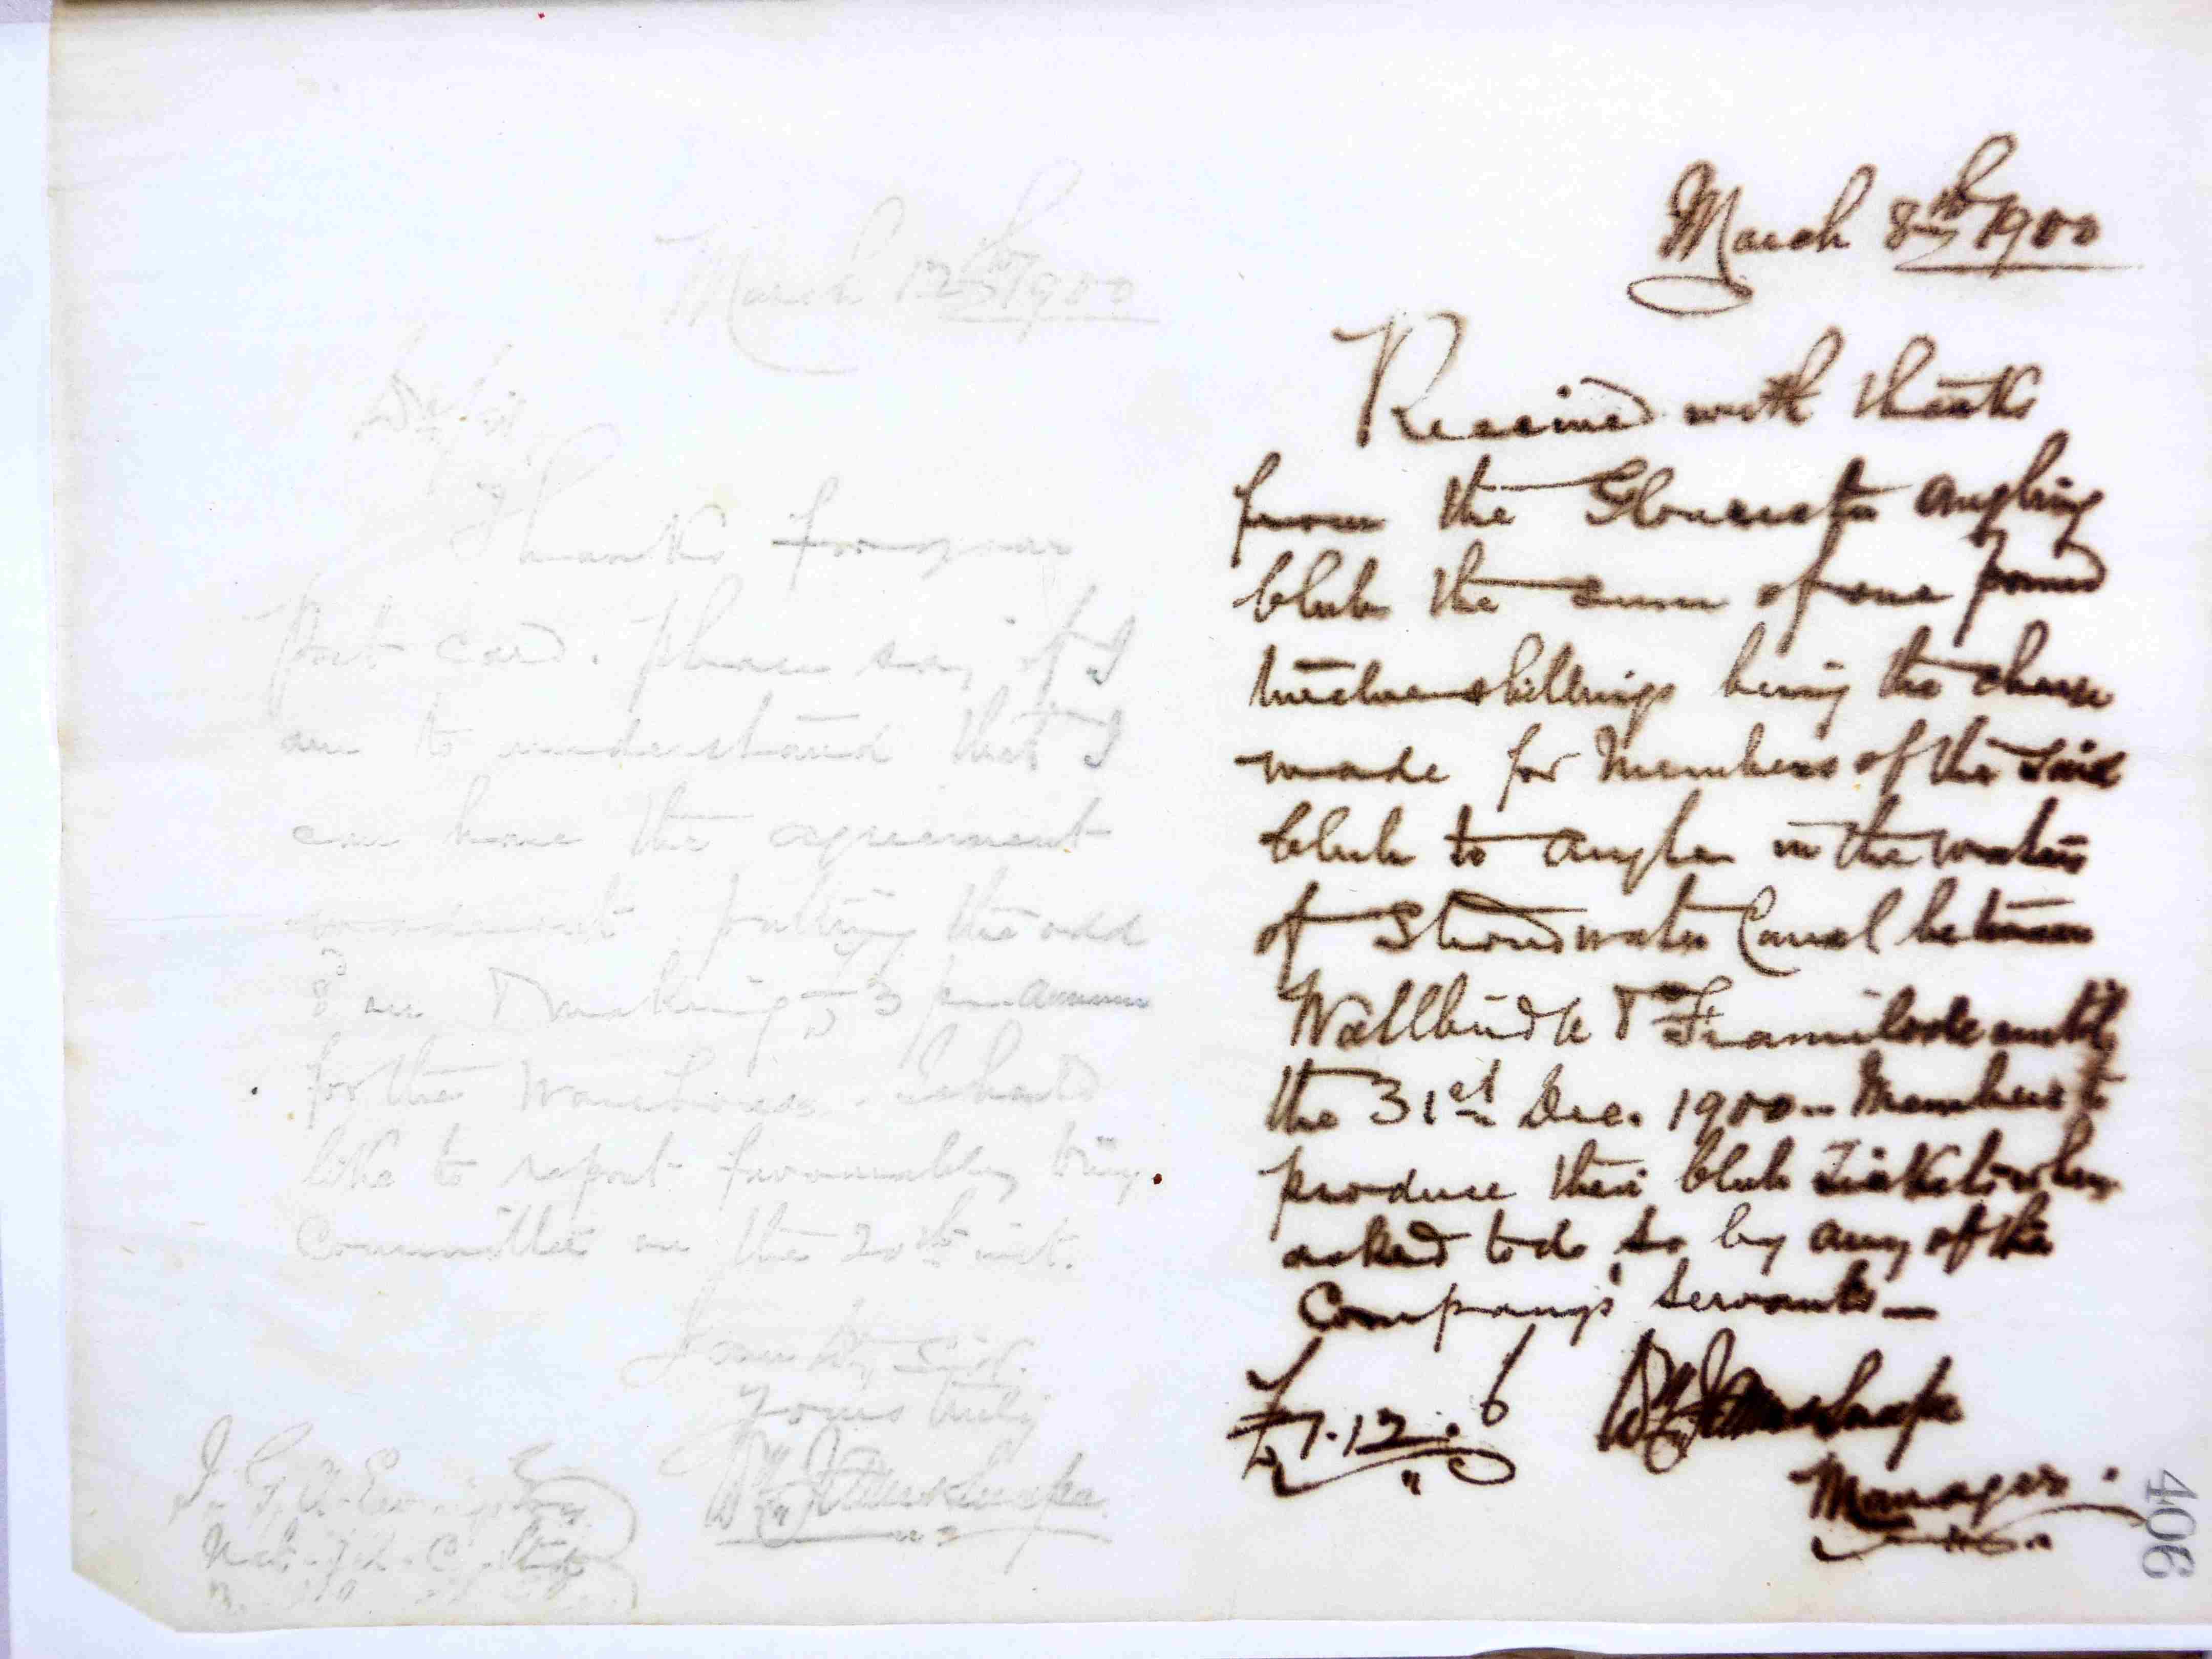 March 12th 1900
Dr Sir
Thanks for your
Post Card. Please say if I
am to understand that I
can have the agreement
putting the odd
8d on & making £3 per annum
for the Warehouse. I should
like to report favourably to my
Committee on the 20th inst.
I am Dr Sir
Yours truly
Wm J Snape
March 8th 1900
Received with thanks
from the Gloucester Angling
Club the sum of one pound
twelve shillings being the charge
made for Members of the said
Club to Angle in the waters
of Stroudwater Canal between
Wallbridge & Framilode until
the 31st Dec. 1900 - Members to
produce their Club Tickets when
asked to do so by any of the
Company's Servants -
£1.12.6 Wm J
Manager.
406